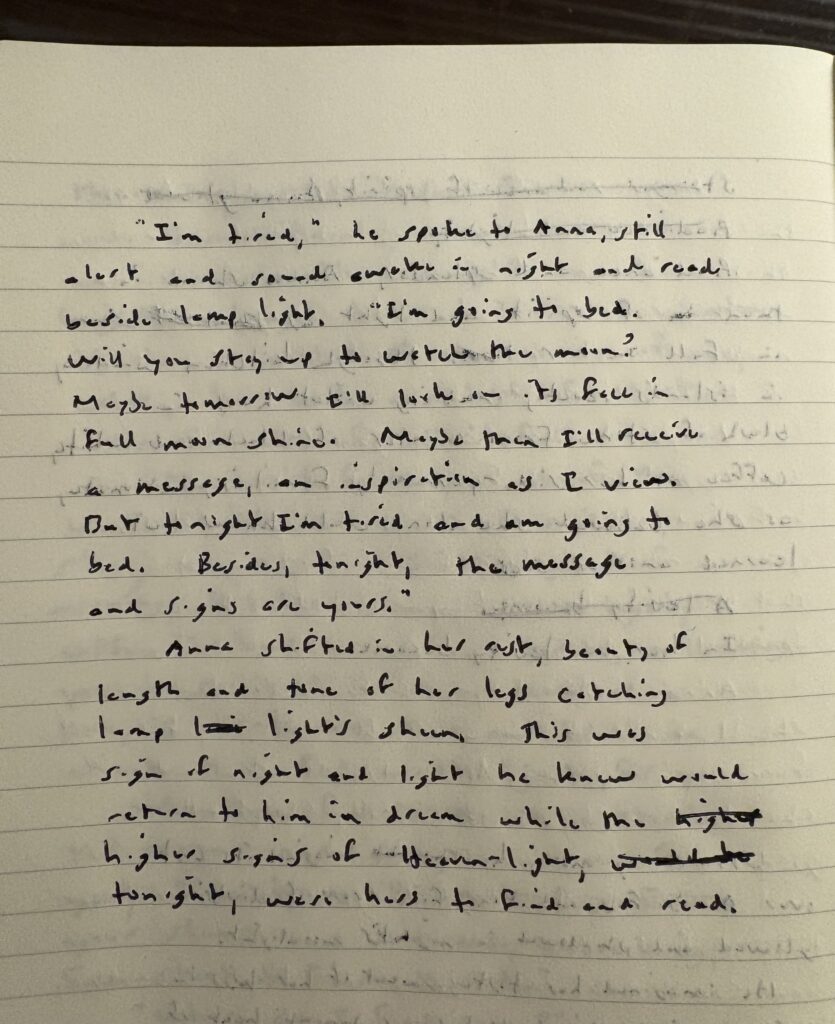 "I'm tired," he spoke to Anna, still
alert and sound awake in night and read
beside lamp light. "I'm going to bed.
Will you stay up to watch the moon?
Maybe tomorrow I'll look on its face in
full moon shine. Maybe then I'll receive
a message, an inspiration as I view.
But tonight I'm tired and am going to
bed. Besides, tonight, the message
and signs are yours."
Anna shifted in her rest, beauty of
length and tone of her legs catching
lamp light's sheen. This was
sign of night and light he knew would
return to him in dream while the higher
higher signs of Heaven-light, would be
tonight, were hers to find and read.